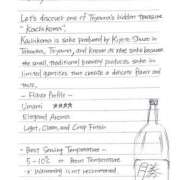 Let's discover one of Toyama's hidden treasure
"Kachikoma".
Kachikoma is sake produced by Kiyoto Shuzo in
Takaoka, Toyama, and known as the sake because
the small, traditional brewery produces sake in
limited quantities that create a delicate flavor and
- Flavor Profile -
Umami ★★★★
Elegant Aroma
Light, Clean, and Crisp Finish
- Best Serving Temperature -
5-10℃ Room Temperature
* Warming is not recommended